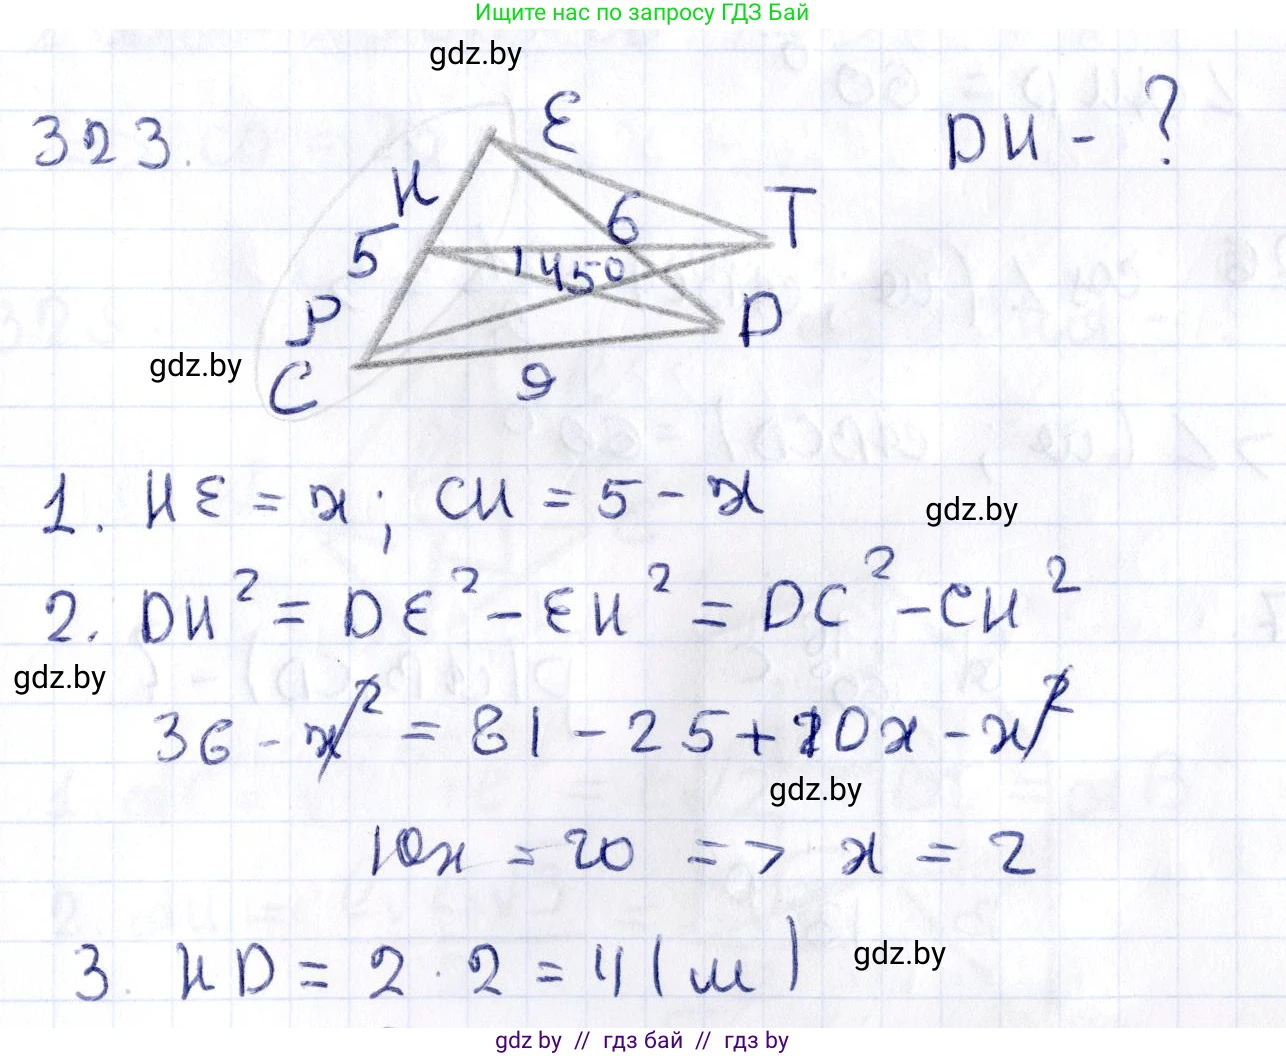 Ищите нас по запросу ГДЗ Бай
gdz.by
323.
E
DH - ?
H
6
T
5
45°
P
D
gdz.by
C
9
1. HE = x; CH = 5 - x
gdz.by
2. DH² = DE² - EH² = DC² - CH²
gdz.by
36 - x² = 81 - 25 + 10x - x²
gdz.by
10x = 20 => x = 2
3. HD = 2 · 2 = 4 (м)
gdz.by
gdz by // гдз бай // gdz by